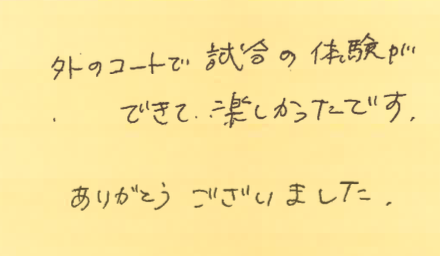 外のコートで試合の体験が
できて、楽しかったです。
ありがとうございました。